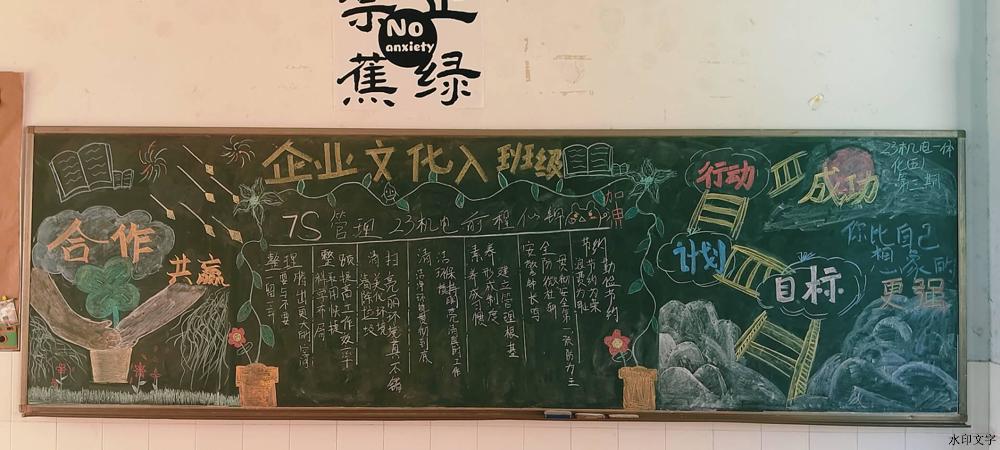 禁止
No
anxiety
蕉绿
企业文化入班级
23机电一体
化(五)
第三期
行动
成功
加
用
7S管理 23机电前程似锦
合作
共赢
计划
目标
你比自己
想象的
更强
整理
要与不要
一留一弃
整顿
科学布局
取用快捷
提高工作效率
清扫
清除垃圾
美化环境
扫亮环境真不错
清洁
清洁环境贯彻到底
保持明亮清爽的工作
环境
素养
养成习惯
形成制度
建立管理根基
安全
安全警钟长鸣
贯彻安全第一预防为主
节约
勤俭节约
节约为荣
浪费为耻
水印文字